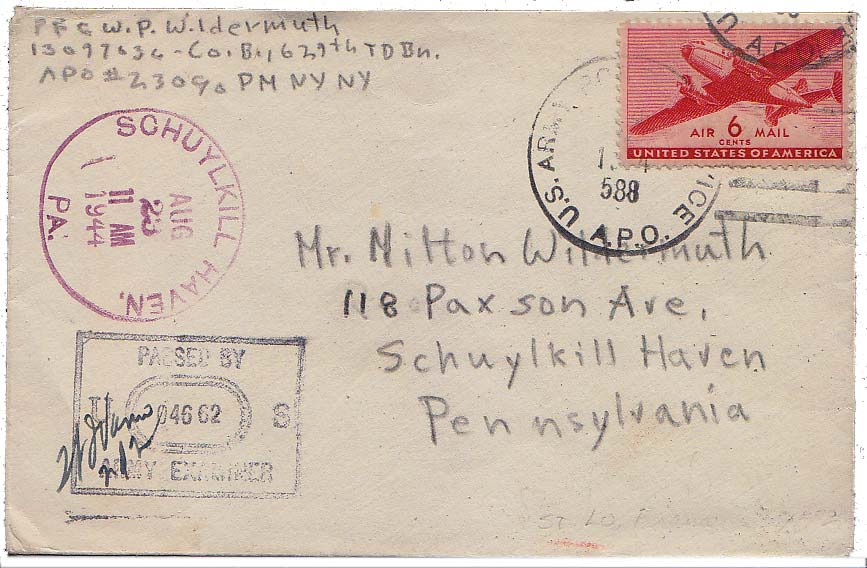 PFC W.P. Wildermuth
13097636-Co. B., 629th TD Bn.
APO # 230 % PM NY NY
U.S. ARMY A.P.O.
588
A.P.O.
AIR 6 MAIL
CENTS
UNITED STATES OF AMERICA
SCHUYLKILL HAVEN,
PA.
AUG
23
11 AM
1944
Mr. Milton Wildermuth
118 Paxson Ave,
Schuylkill Haven
Pennsylvania
PASSED BY
U 04662 S
ARMY EXAMINER
St Lo,